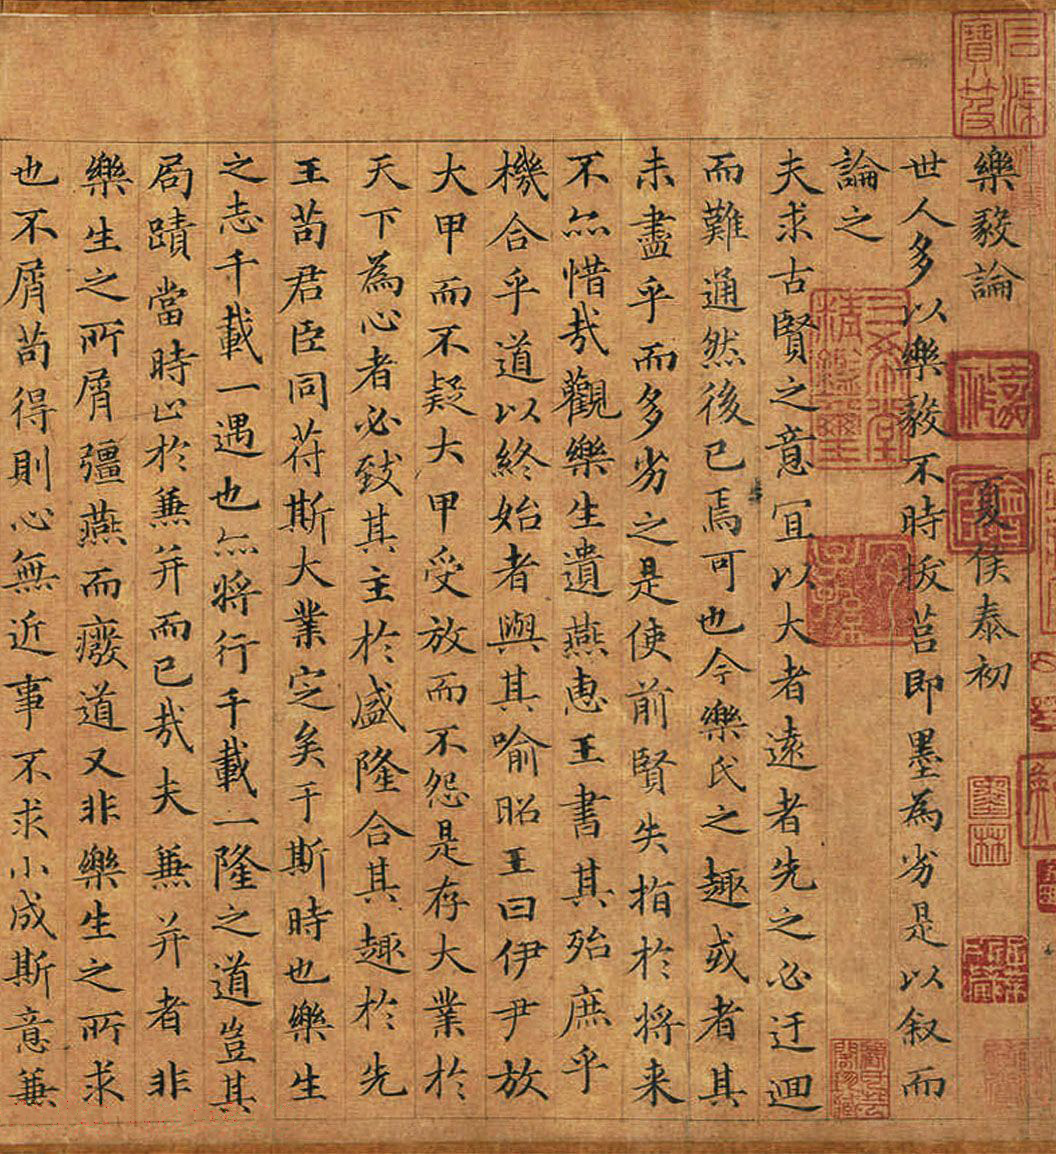 樂毅論 夏侯泰初
世人多以樂毅不時拔莒即墨為劣是以叙而
論之
夫求古賢之意冝以大者遠者先之必迂迴
而難通然後已焉可也今樂氏之趣或者其
未盡乎而多劣之是使前賢失指於將来
不亦惜哉觀樂生遺燕惠王書其殆庶乎
機合乎道以終始者與其喻昭王曰伊尹放
大甲而不疑大甲受放而不怨是存大業於
天下為心者必致其主於盛隆合其趣於先
王苟君臣同苻斯大業定矣于斯時也樂生
之志千載一遇也亦將行千載一隆之道豈其
局蹟當時止於兼并而已哉夫兼并者非
樂生之所屑彊燕而癈道又非樂生之所求
也不屑苟得則心無近事不求小成斯意兼
三希堂精鑑璽
宜子孫
墨林